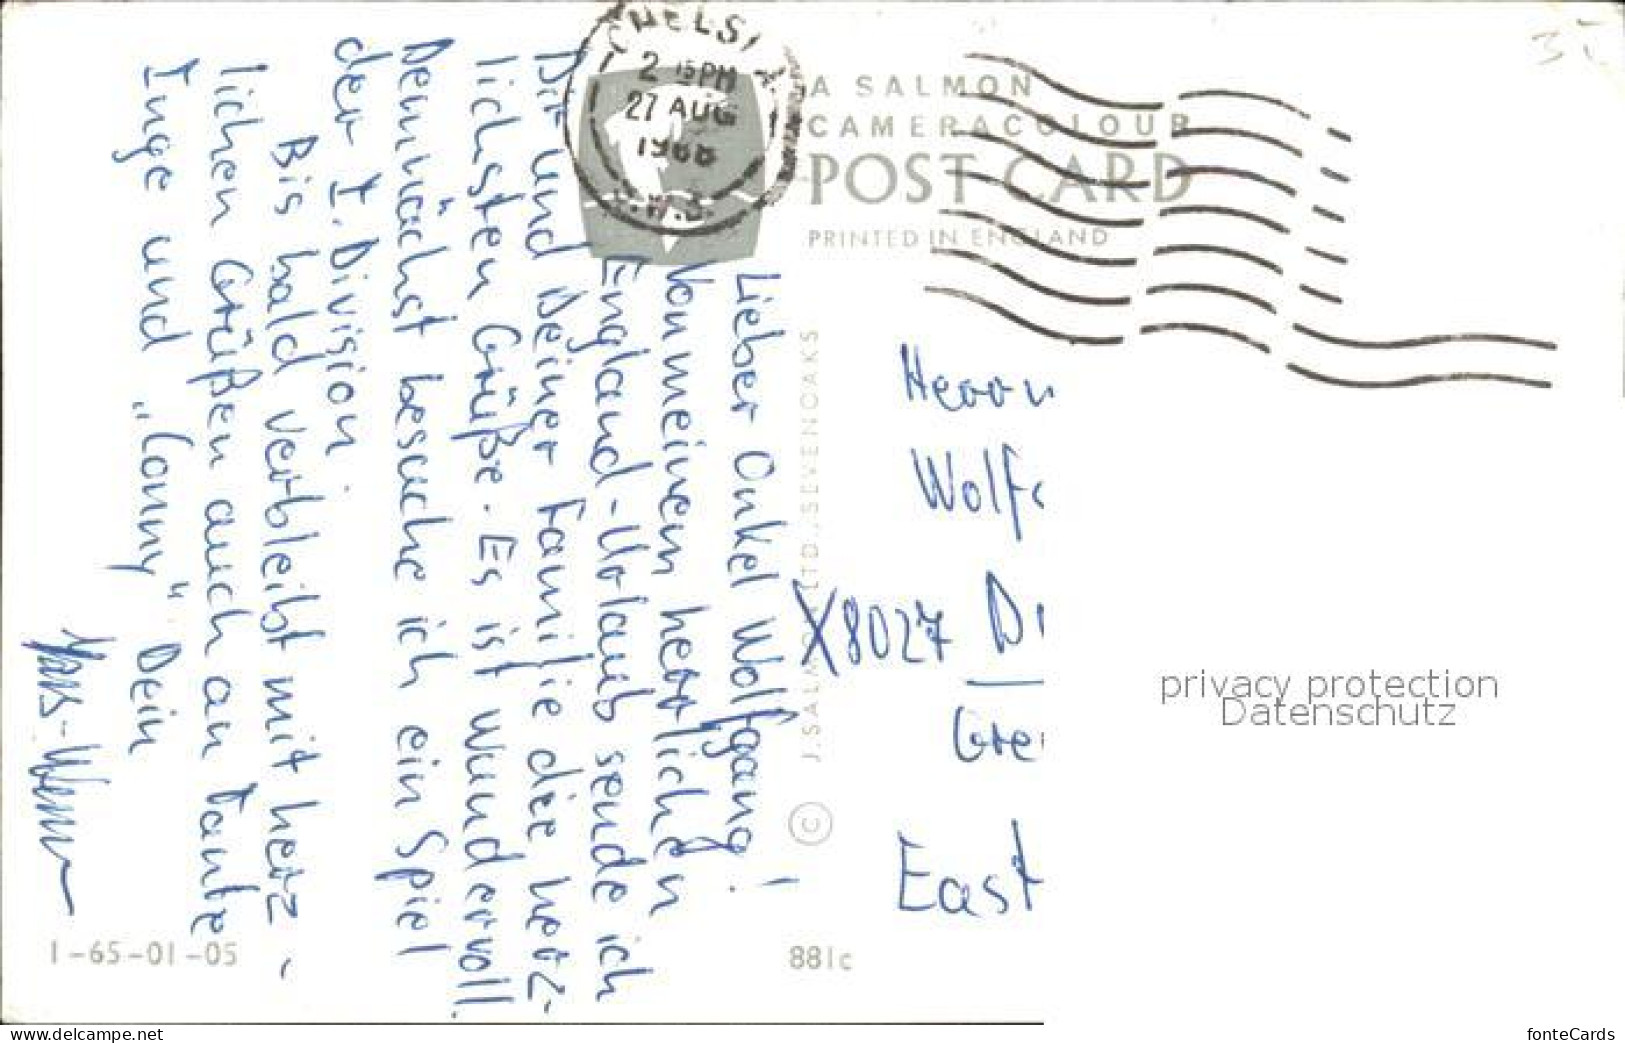 CHELSEA
2 15 PM
27 AUG
1966
S.W.3.
A SALMON
CAMERACOLOUR
POST CARD
PRINTED IN ENGLAND
Lieber Onkel Wolfgang!
Von meinem herrlichen
England-Urlaub sende ich
Dir und Deiner Familie die herz-
lichsten Grüße. Es ist wundervoll.
Demnächst besuche ich ein Spiel
der I. Division
Bis bald verbleibt mit herz-
lichen Grüßen auch an Tante
Inge und „Conny“ Dein
Hans-Werner
J. SALMON LTD., SEVENOAKS
©
Herrn
Wolfg
X8027 D
Gre
East
1-65-01-05
881c
privacy protection
Datenschutz
www.delcampe.net
fonteCards